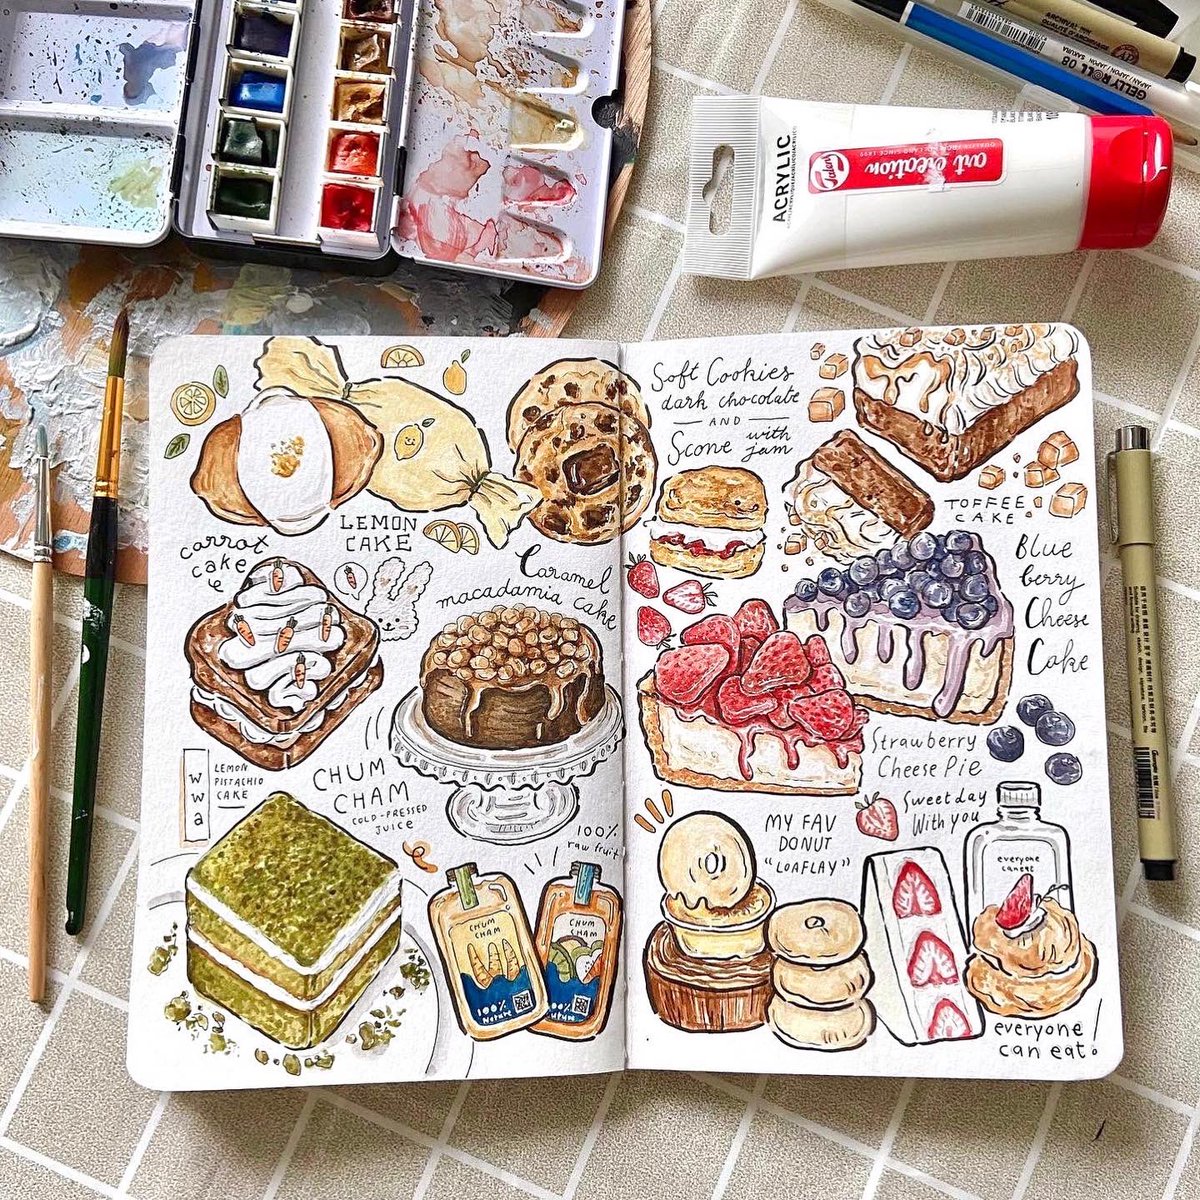 GELLY ROLL 08
SAKURA
ACRYLIC
Talens
art creation
LEMON
CAKE
carrot
cake
Caramel
macadamia cake
w
w
a
LEMON
PISTACHIO
CAKE
CHUM
CHAM
COLD-PRESSED
JUICE
100%
raw fruit
CHUM
CHAM
100%
Nature
CHUM
CHAM
100%
Soft Cookies
dark chocolate
AND
Scone with
jam
TOFFEE
CAKE
Blue
berry
Cheese
Cake
Strawberry
Cheese Pie
Sweetday
With you
MY FAV
DONUT
"LOAFLAY"
everyone
can eat
everyone
can eat!